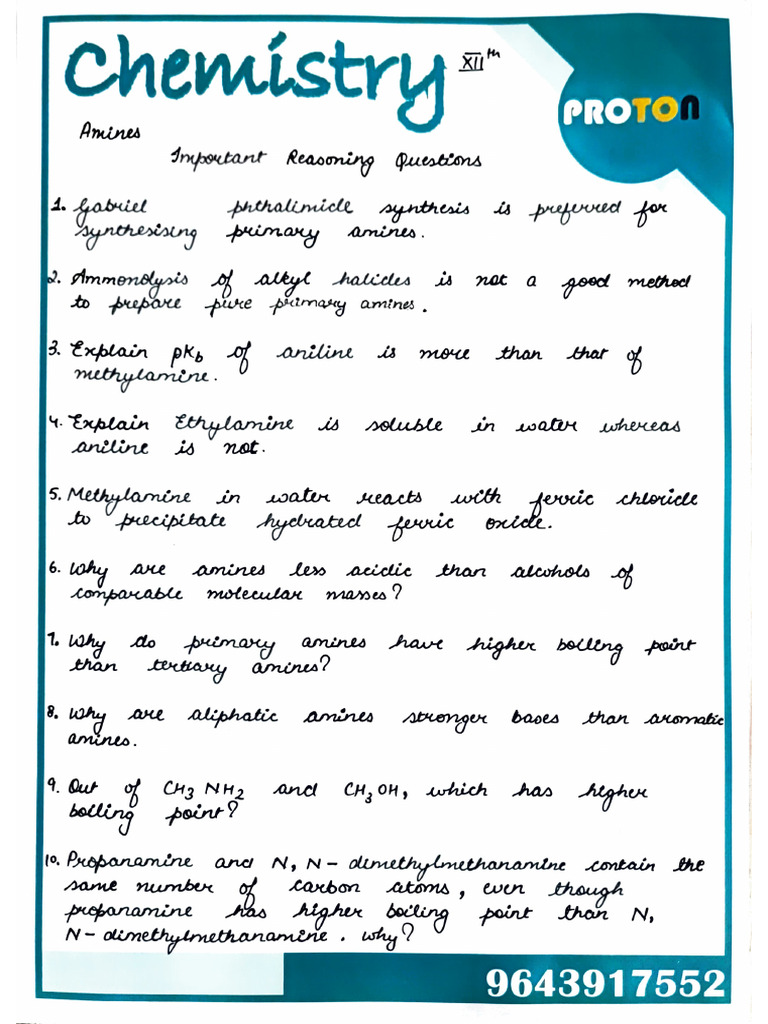 Chemistry XIIth
PROTON
Amines
Important Reasoning Questions
1. Gabriel phthalimide synthesis is preferred for
synthesising primary amines.
2. Ammonolysis of alkyl halides is not a good method
to prepare pure primary amines.
3. Explain pKb of aniline is more than that of
methylamine.
4. Explain Ethylamine is soluble in water whereas
aniline is not.
5. Methylamine in water reacts with ferric chloride
to precipitate hydrated ferric oxide.
6. Why are amines less acidic than alcohols of
comparable molecular masses?
7. Why do primary amines have higher boiling point
than tertiary amines?
8. Why are aliphatic amines stronger bases than aromatic
amines.
9. Out of CH3 NH2 and CH3OH, which has higher
boiling point?
10. Propanamine and N, N - dimethylmethanamine contain the
same number of carbon atoms, even though
propanamine has higher boiling point than N,
N - dimethylmethanamine. Why?
9643917552